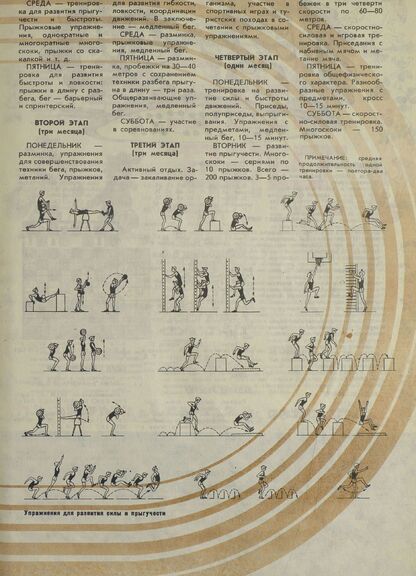 СРЕДА — трениров-
ка для развития прыгу-
чести и быстроты.
Прыжковые упражне-
ния, однократные и
многократные много-
скоки, прыжки со ска-
калкой и т. д.
ПЯТНИЦА — трени-
ровка для развития
быстроты и ловкости:
прыжки в длину с раз-
бега, бег — барьерный
и спринтерский.
ВТОРОЙ ЭТАП
(три месяца)
ПОНЕДЕЛЬНИК —
разминка, упражнения
для совершенствования
техники бега, прыжков,
метаний. Упражнения
для развития гибкости,
ловкости, координации
движений. В заключе-
ние — медленный бег.
СРЕДА — разминка,
прыжковые упражне-
ния, медленный бег.
ПЯТНИЦА — размин-
ка, пробежки на 30—40
метров с сохранением
техники разбега прыгу-
на в длину — три раза.
Общеразвивающие уп-
ражнения, медленный
бег.
СУББОТА — участие
в соревнованиях.
ТРЕТИЙ ЭТАП
(три месяца)
Активный отдых. За-
дача — закаливание ор-
ганизма, участие в
спортивных играх и ту-
ристских походах в со-
четании с прыжковыми
упражнениями.
ЧЕТВЕРТЫЙ ЭТАП
(один месяц)
ПОНЕДЕЛЬНИК —
тренировка на развитие
силы и быстроты
движений. Приседы,
полуприседы, выпрыги-
вания. Упражнения с
предметами, медлен-
ный бег, 10—15 минут.
ВТОРНИК — разви-
тие прыгучести. Много-
скоки — сериями по
10 прыжков. Всего —
200 прыжков. 3—5 про-
бежек в три четверти
скорости по 60—80
метров.
СРЕДА — скоростно-
силовая и игровая тре-
нировка. Приседания с
набивным мячом и ме-
тание мяча.
ПЯТНИЦА — трени-
ровка общефизическо-
го характера. Разнооб-
разные упражнения с
предметами, кросс
10—15 минут.
СУББОТА — скорост-
но-силовая тренировка.
Многоскоки — 150
прыжков.
ПРИМЕЧАНИЕ: средняя
продолжительность одной
тренировки — полтора-два
часа.
Упражнения для развития силы и прыгучести